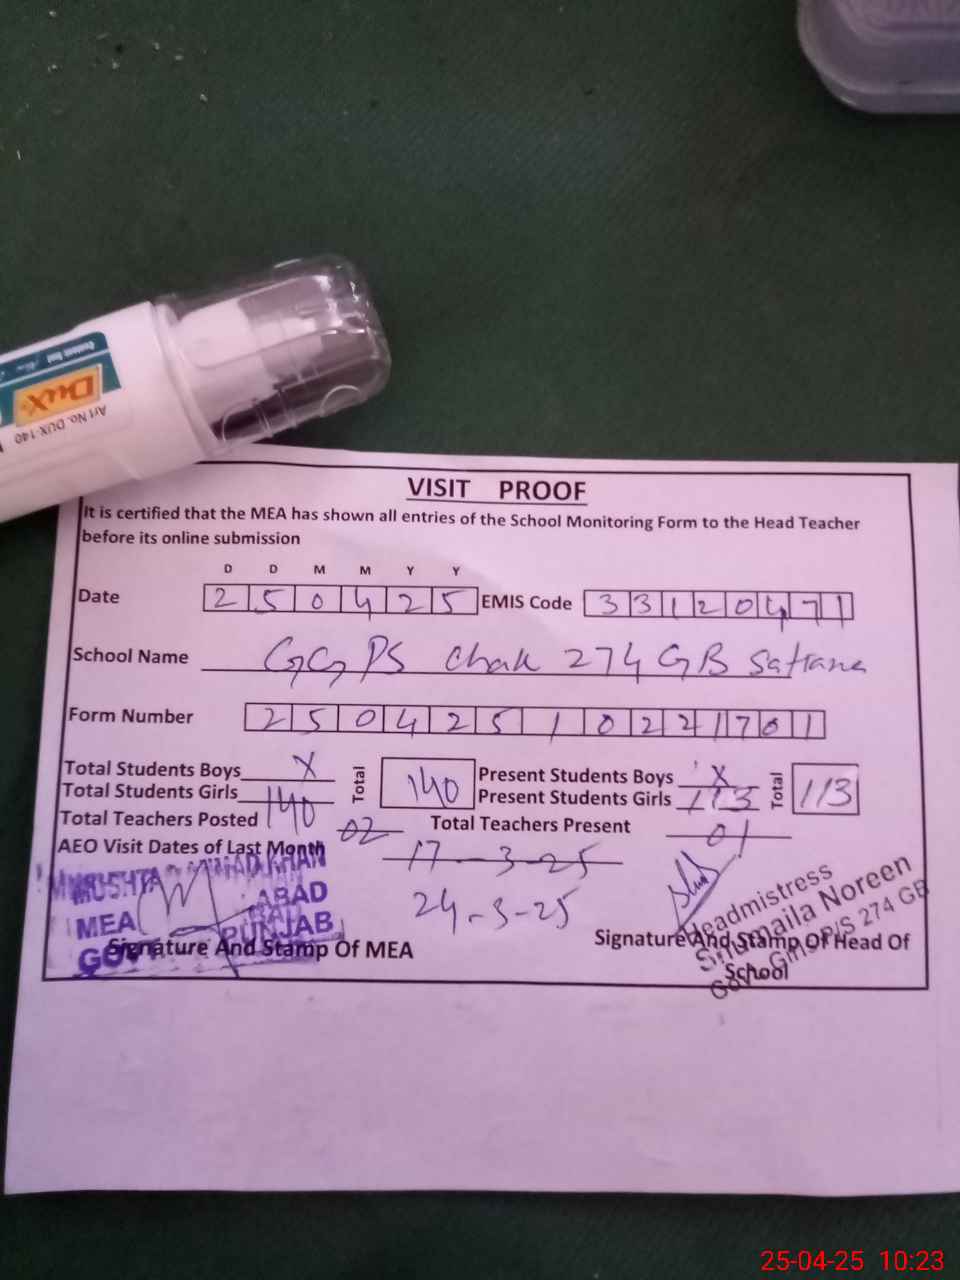 Art No. DUX-140
DUX
VISIT PROOF
It is certified that the MEA has shown all entries of the School Monitoring Form to the Head Teacher
before its online submission
D D M M Y Y
Date 2 5 0 4 2 5 EMIS Code 3 3 1 2 0 4 7 1
School Name GGPS Chak 274 GB Satiana
Form Number 2 5 0 4 2 5 1 0 2 2 1 7 0 1
Total Students Boys X Total 140 Present Students Boys X Total 113
Total Students Girls 140 Present Students Girls 113
Total Teachers Posted 02 Total Teachers Present 01
AEO Visit Dates of Last Month 17-3-25
24-3-25
MEA
ABAD
PUNJAB
Signature And Stamp Of MEA
Headmistress
Shumaila Noreen
Govt. Girls P/S 274 GB
Signature And Stamp Of Head Of
School
25-04-25 10:23